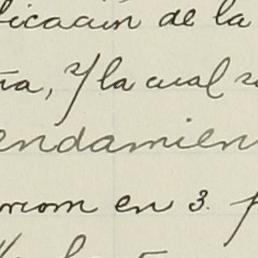 ficacion de la
ña, y la cual s
endamien
rrom en 3. p